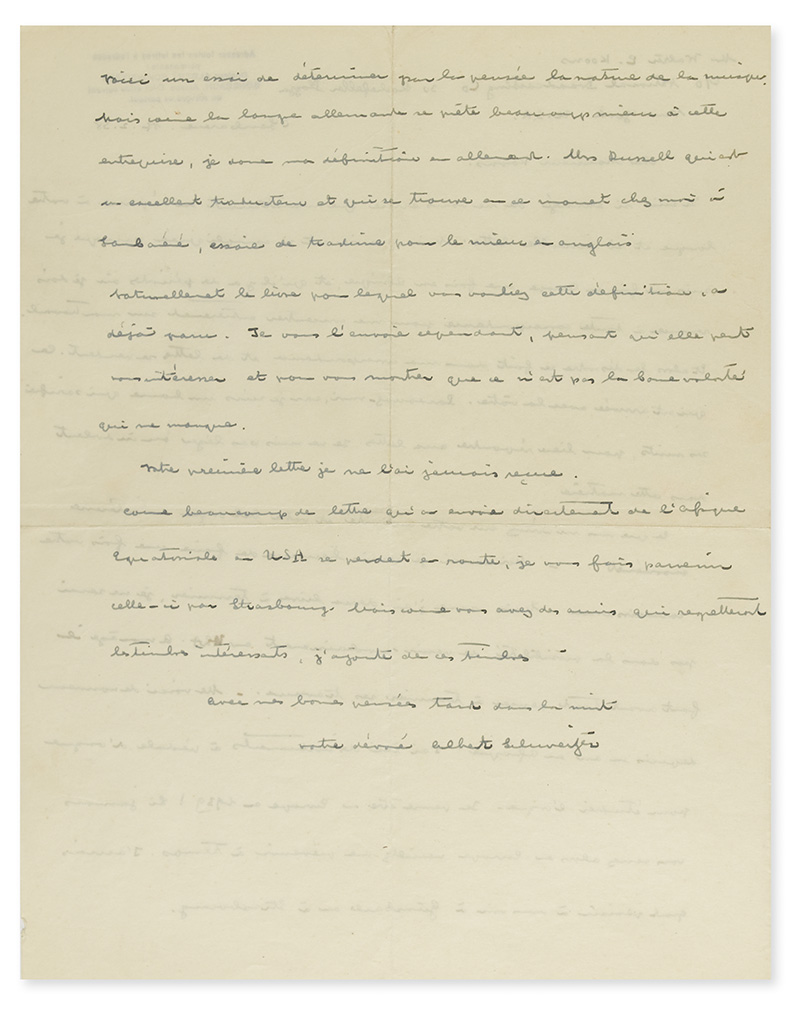 Voici un essai de déterminer par la pensée la nature de la musique.
Mais comme la langue allemande se prête beaucoup mieux à cette
entreprise, je donne ma définition en allemand. Mrs Russell qui est
un excellent traducteur et qui se trouve en ce moment chez moi à
Lambaréné, essaie de traduire pour le mieux en anglais
Naturellement le livre pour lequel vous vouliez cette définition, a
déjà paru. Je vous l'envoie cependant, pensant qu'elle peut
vous intéresser et pour vous montrer que ce n'est pas la bonne volonté
qui me manque.
Votre première lettre je ne l'ai jamais reçue.
Comme beaucoup de lettres qu'on envoie directement de l'Afrique
Equatoriale en USA se perdent en route, je vous fais parvenir
celle-ci par Strasbourg. Mais comme vous avez des amis qui regretteront
les timbres intéressants, j'ajoute de ces timbres
Avec mes bonnes pensées tard dans la nuit
votre dévoué Albert Schweitzer